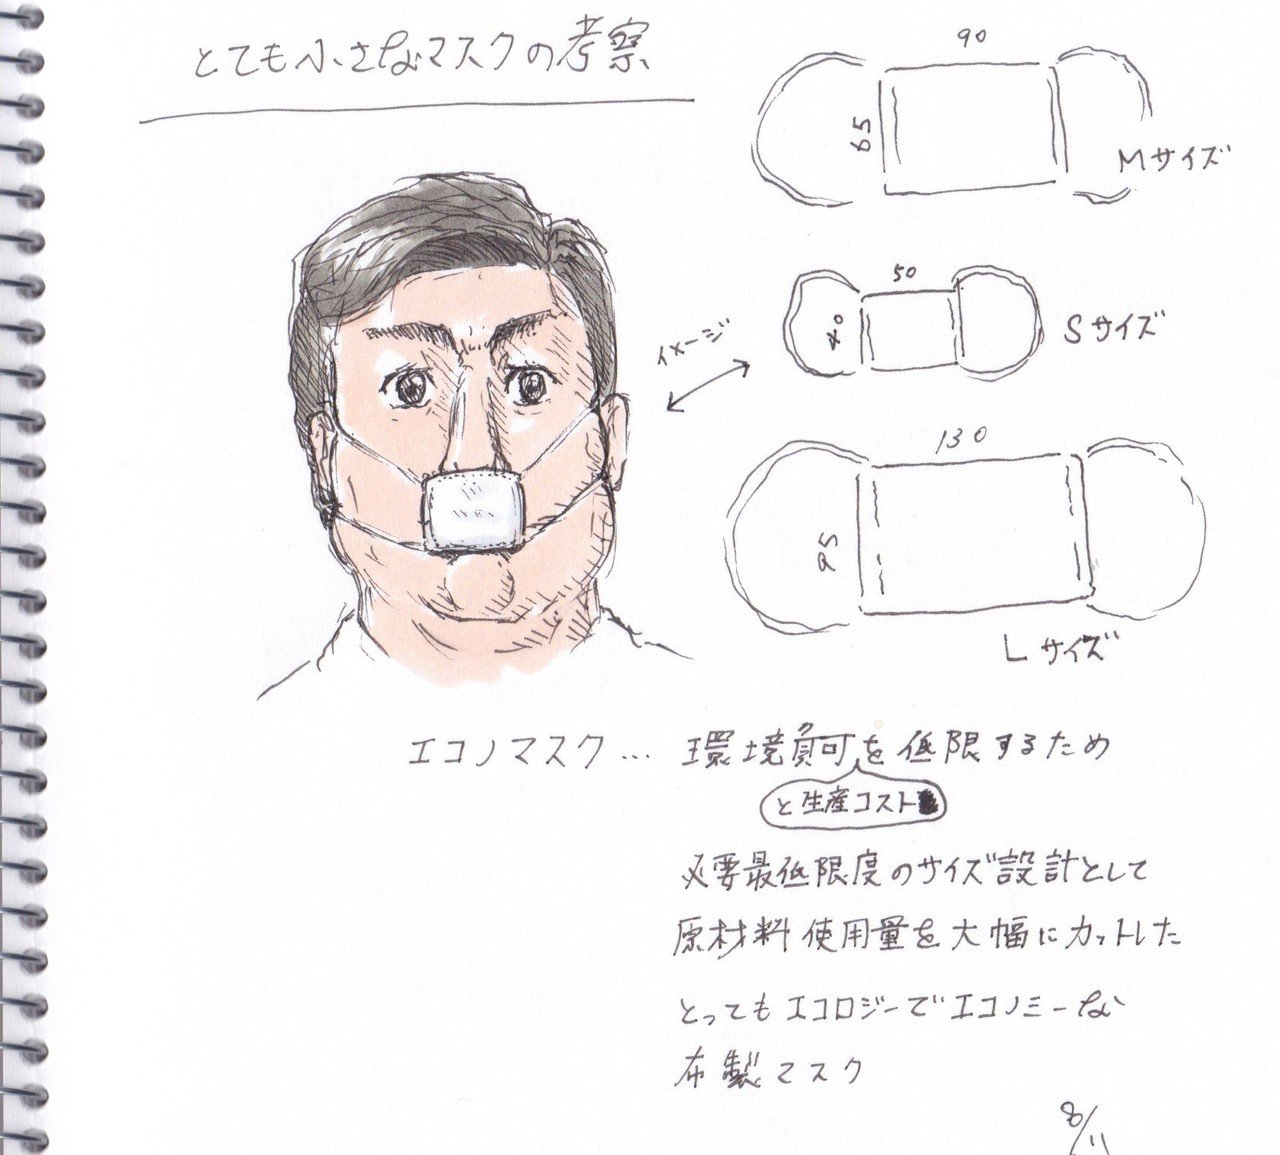 とても小さなマスクの考察
90
65
Mサイズ
50
40
Sサイズ
イメージ
130
95
Lサイズ
エコノマスク… 環境負可を低限するため
と生産コスト
必要最低限度のサイズ設計として
原材料使用量を大幅にカットした
とってもエコロジーでエコノミーな
布製マスク
8/11